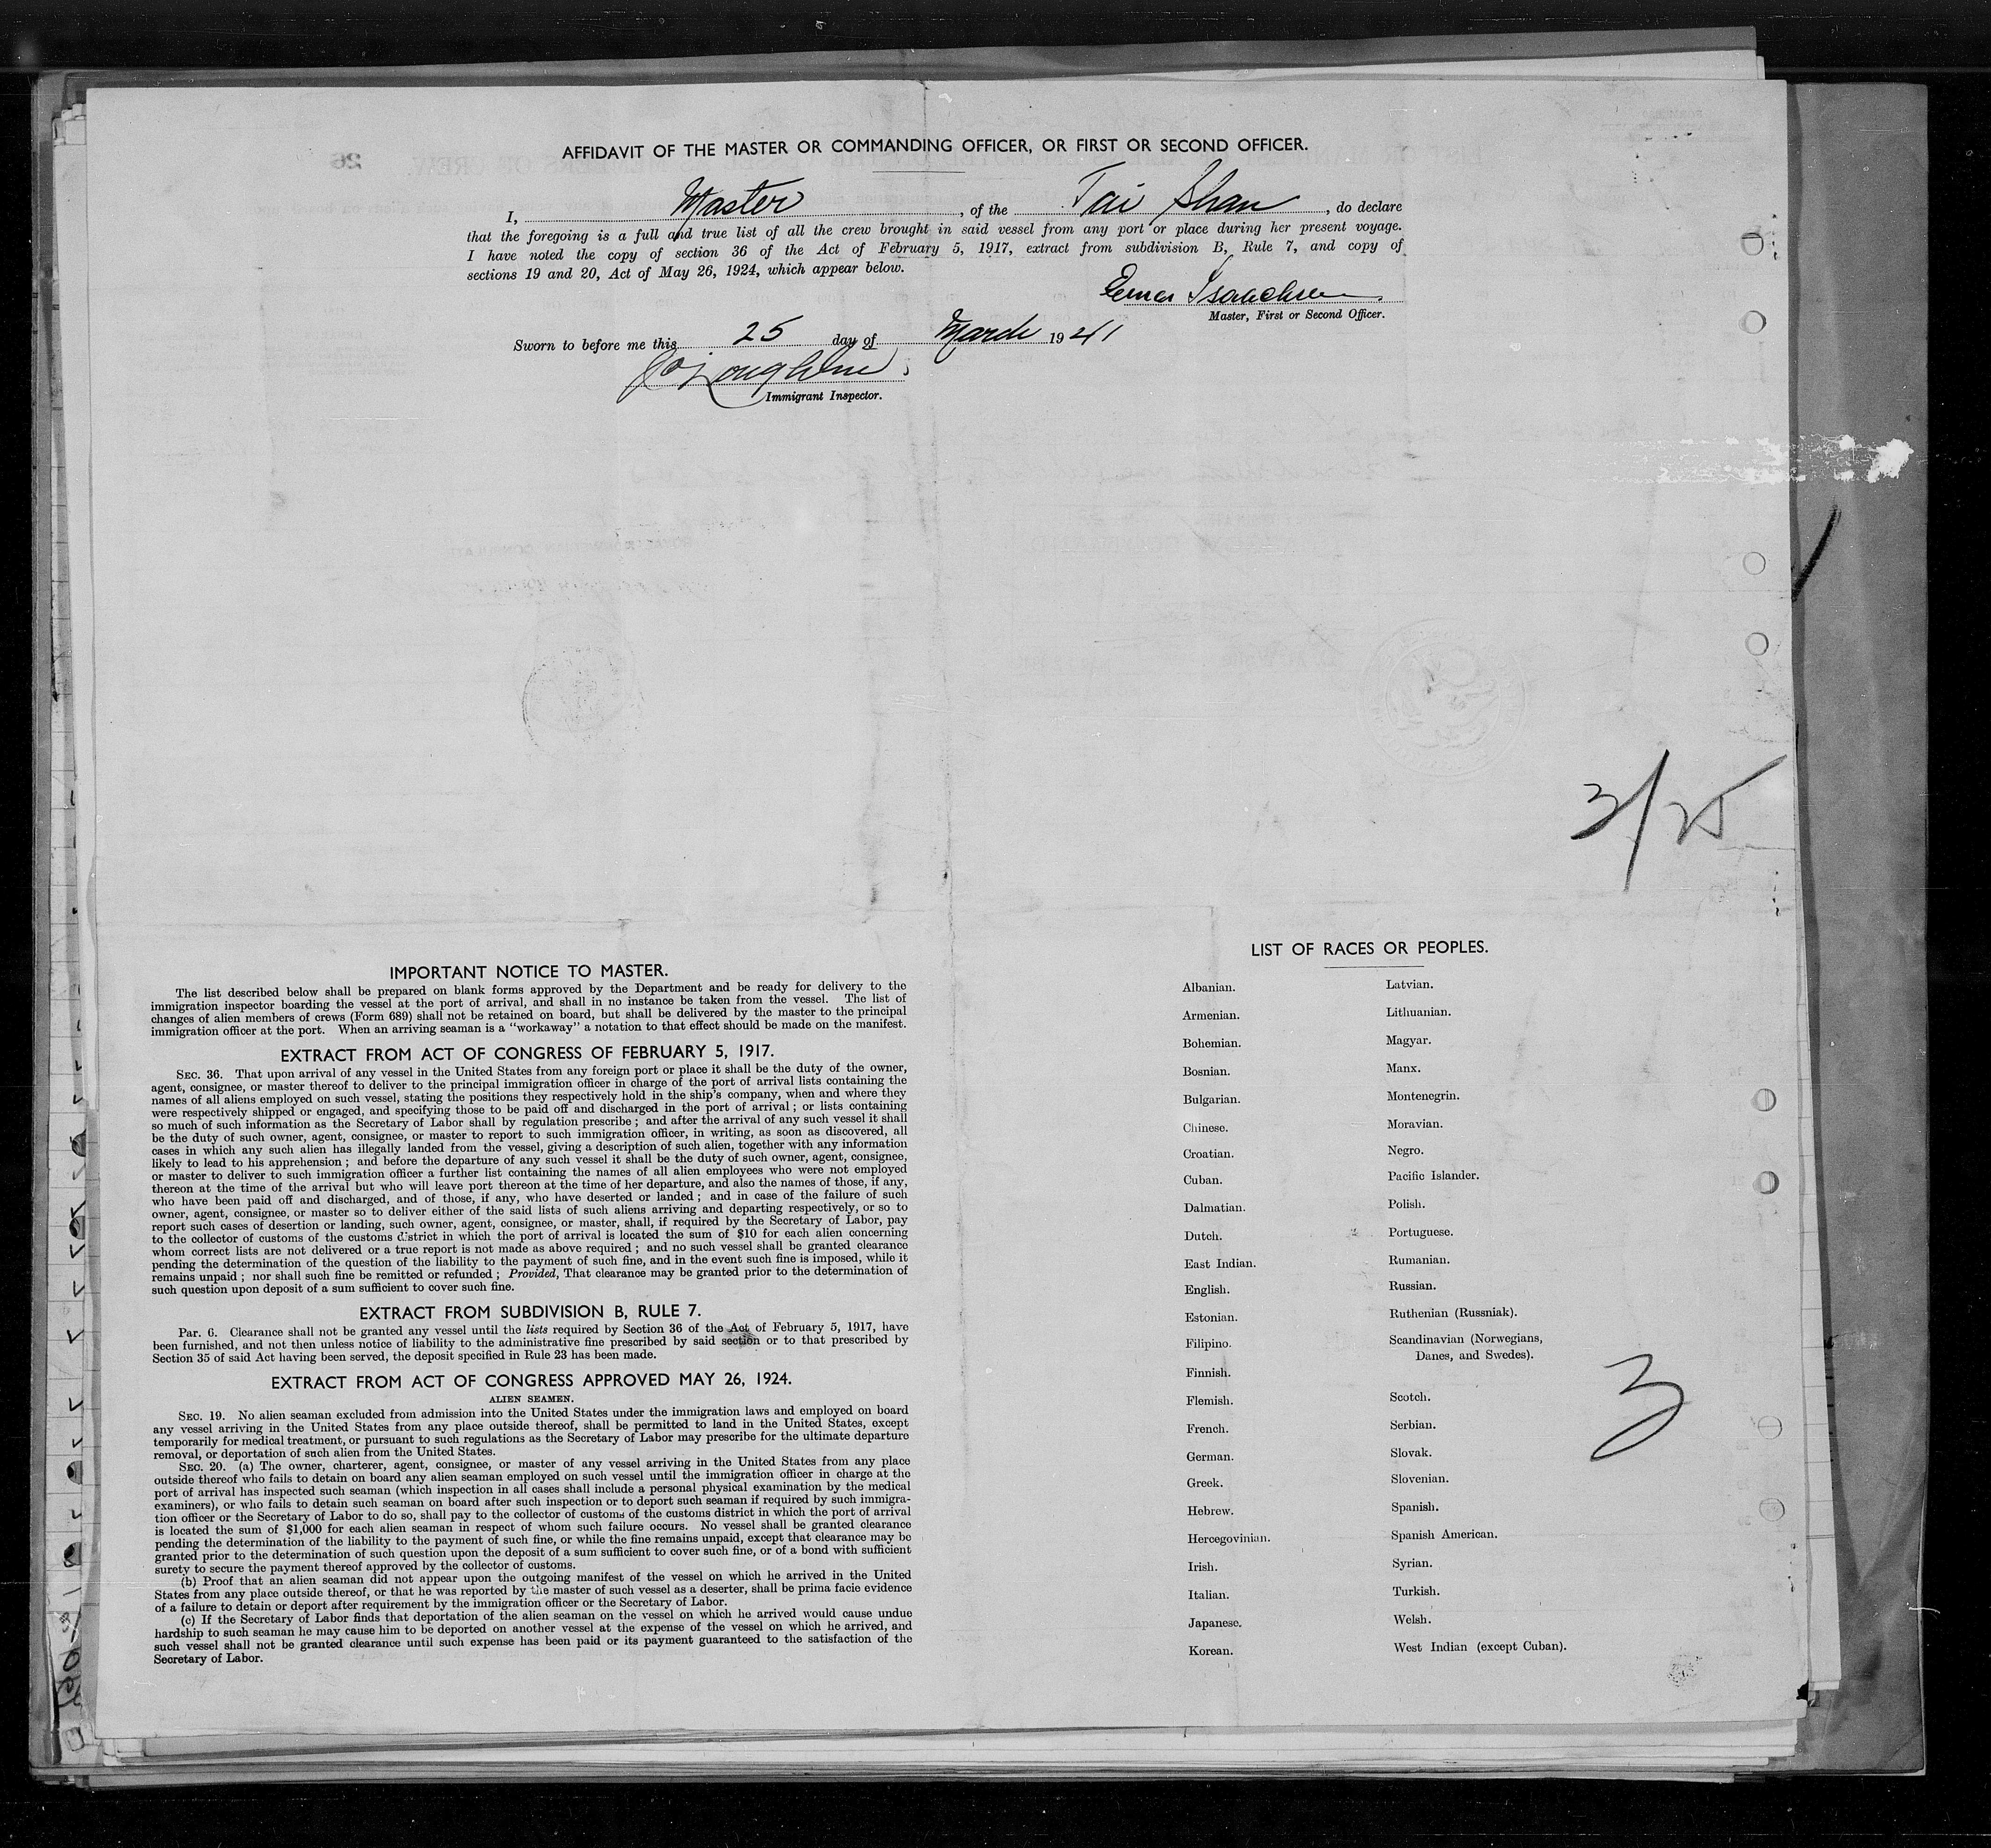 AFFIDAVIT OF THE MASTER OR COMMANDING OFFICER, OR FIRST OR SECOND OFFICER.
I, Master, of the Tai Shan, do declare
that the foregoing is a full and true list of all the crew brought in said vessel from any port or place during her present voyage.
I have noted the copy of section 36 of the Act of February 5, 1917, extract from subdivision B, Rule 7, and copy of
sections 19 and 20, Act of May 26, 1924, which appear below.
Isaachsen
Master, First or Second Officer.
Sworn to before me this 25 day of March 1941
Immigrant Inspector.
3/25
IMPORTANT NOTICE TO MASTER.
The list described below shall be prepared on blank forms approved by the Department and be ready for delivery to the
immigration inspector boarding the vessel at the port of arrival, and shall in no instance be taken from the vessel. The list of
changes of alien members of crews (Form 689) shall not be retained on board, but shall be delivered by the master to the principal
immigration officer at the port. When an arriving seaman is a "workaway" a notation to that effect should be made on the manifest.
EXTRACT FROM ACT OF CONGRESS OF FEBRUARY 5, 1917.
SEC. 36. That upon arrival of any vessel in the United States from any foreign port or place it shall be the duty of the owner,
agent, consignee, or master thereof to deliver to the principal immigration officer in charge of the port of arrival lists containing the
names of all aliens employed on such vessel, stating the positions they respectively hold in the ship's company, when and where they
were respectively shipped or engaged, and specifying those to be paid off and discharged in the port of arrival; or lists containing
so much of such information as the Secretary of Labor shall by regulation prescribe; and after the arrival of any such vessel it shall
be the duty of such owner, agent, consignee, or master to report to such immigration officer, in writing, as soon as discovered, all
cases in which any such alien has illegally landed from the vessel, giving a description of such alien, together with any information
likely to lead to his apprehension; and before the departure of any such vessel it shall be the duty of such owner, agent, consignee,
or master to deliver to such immigration officer a further list containing the names of all alien employees who were not employed
thereon at the time of the arrival but who will leave port thereon at the time of her departure, and also the names of those, if any,
who have been paid off and discharged, and of those, if any, who have deserted or landed; and in case of the failure of such
owner, agent, consignee, or master so to deliver either of the said lists of such aliens arriving and departing respectively, or so to
report such cases of desertion or landing, such owner, agent, consignee, or master, shall, if required by the Secretary of Labor, pay
to the collector of customs of the customs district in which the port of arrival is located the sum of $10 for each alien concerning
whom correct lists are not delivered or a true report is not made as above required; and no such vessel shall be granted clearance
pending the determination of the question of the liability to the payment of such fine, and in the event such fine is imposed, while it
remains unpaid; nor shall such fine be remitted or refunded; Provided, That clearance may be granted prior to the determination of
such question upon deposit of a sum sufficient to cover such fine.
EXTRACT FROM SUBDIVISION B, RULE 7.
Par. 6. Clearance shall not be granted any vessel until the lists required by Section 36 of the Act of February 5, 1917, have
been furnished, and not then unless notice of liability to the administrative fine prescribed by said section or to that prescribed by
Section 35 of said Act having been served, the deposit specified in Rule 23 has been made.
EXTRACT FROM ACT OF CONGRESS APPROVED MAY 26, 1924.
ALIEN SEAMEN.
SEC. 19. No alien seaman excluded from admission into the United States under the immigration laws and employed on board
any vessel arriving in the United States from any place outside thereof, shall be permitted to land in the United States, except
temporarily for medical treatment, or pursuant to such regulations as the Secretary of Labor may prescribe for the ultimate departure
removal, or deportation of such alien from the United States.
SEC. 20. (a) The owner, charterer, agent, consignee, or master of any vessel arriving in the United States from any place
outside thereof who fails to detain on board any alien seaman employed on such vessel until the immigration officer in charge at the
port of arrival has inspected such seaman (which inspection in all cases shall include a personal physical examination by the medical
examiners), or who fails to detain such seaman on board after such inspection or to deport such seaman if required by such immigra-
tion officer or the Secretary of Labor to do so, shall pay to the collector of customs of the customs district in which the port of arrival
is located the sum of $1,000 for each alien seaman in respect of whom such failure occurs. No vessel shall be granted clearance
pending the determination of the liability to the payment of such fine, or while the fine remains unpaid, except that clearance may be
granted prior to the determination of such question upon the deposit of a sum sufficient to cover such fine, or of a bond with sufficient
surety to secure the payment thereof approved by the collector of customs.
(b) Proof that an alien seaman did not appear upon the outgoing manifest of the vessel on which he arrived in the United
States from any place outside thereof, or that he was reported by the master of such vessel as a deserter, shall be prima facie evidence
of a failure to detain or deport after requirement by the immigration officer or the Secretary of Labor.
(c) If the Secretary of Labor finds that deportation of the alien seaman on the vessel on which he arrived would cause undue
hardship to such seaman he may cause him to be deported on another vessel at the expense of the vessel on which he arrived, and
such vessel shall not be granted clearance until such expense has been paid or its payment guaranteed to the satisfaction of the
Secretary of Labor.
LIST OF RACES OR PEOPLES.
Albanian.
Armenian.
Bohemian.
Bosnian.
Bulgarian.
Chinese.
Croatian.
Cuban.
Dalmatian.
Dutch.
East Indian.
English.
Estonian.
Filipino.
Finnish.
Flemish.
French.
German.
Greek.
Hebrew.
Hercegovinian.
Irish.
Italian.
Japanese.
Korean.
Latvian.
Lithuanian.
Magyar.
Manx.
Montenegrin.
Moravian.
Negro.
Pacific Islander.
Polish.
Portuguese.
Rumanian.
Russian.
Ruthenian (Russniak).
Scandinavian (Norwegians,
Danes, and Swedes).
Scotch.
Serbian.
Slovak.
Slovenian.
Spanish.
Spanish American.
Syrian.
Turkish.
Welsh.
West Indian (except Cuban).
3